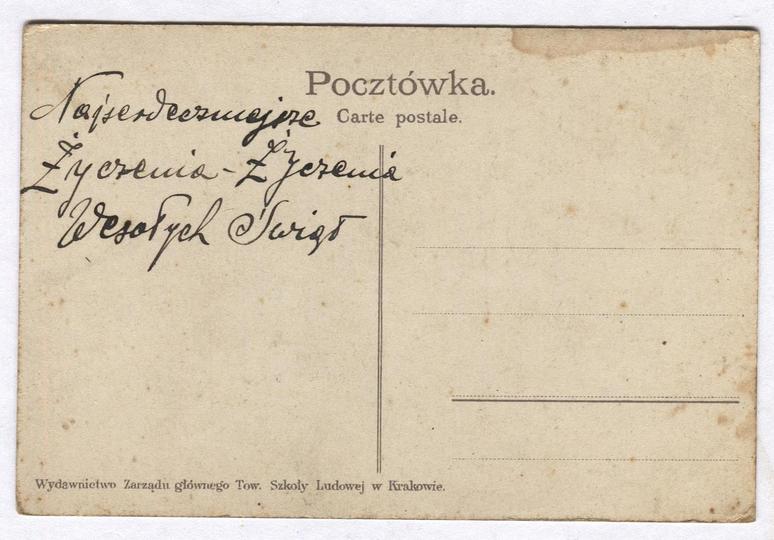 Pocztówka.
Carte postale.
Najserdeczniejsze
Życzenia - Życzenia
Wesołych Świąt
Wydawnictwo Zarządu głównego Tow. Szkoly Ludowej w Krakowie.